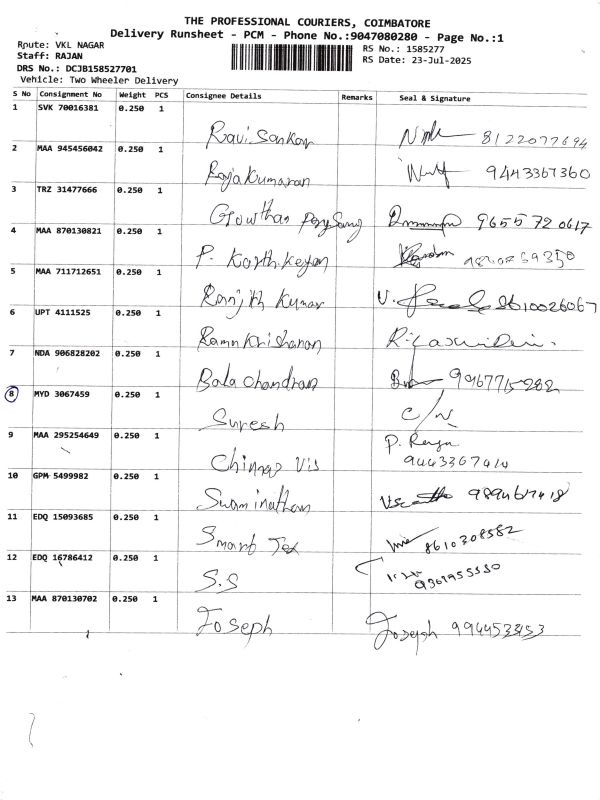 THE PROFESSIONAL COURIERS, COIMBATORE
Delivery Runsheet - PCM - Phone No.:9047080280 - Page No.:1
Route: VKL NAGAR RS No.: 1585277
Staff: RAJAN RS Date: 23-Jul-2025
DRS No.: DCJB158527701
Vehicle: Two Wheeler Delivery
S No Consignment No Weight PCS Consignee Details Remarks Seal & Signature
1 SVK 70016381 0.250 1
Ravi Sankar 8122077694
2 MAA 945456042 0.250 1
Raja Kumaran 9443367360
3 TRZ 31477666 0.250 1
Gowtham 9655720617
4 MAA 870130821 0.250 1
P. Karthikeyan
5 MAA 711712651 0.250 1
Ranjith Kumar V. 8610026067
6 UPT 4111525 0.250 1
Ramakrishanan
7 NDA 906828202 0.250 1
Bala chandran 9967715282
8 MYD 3067459 0.250 1
Suresh C/N
9 MAA 295254649 0.250 1
P. Raja
9443367414
10 GPM 5499982 0.250 1
Swaminathan 9894617418
11 EDQ 15093685 0.250 1
Smart Tex 8610308582
12 EDQ 16786412 0.250 1
S.S
13 MAA 870130702 0.250 1
Joseph Joseph